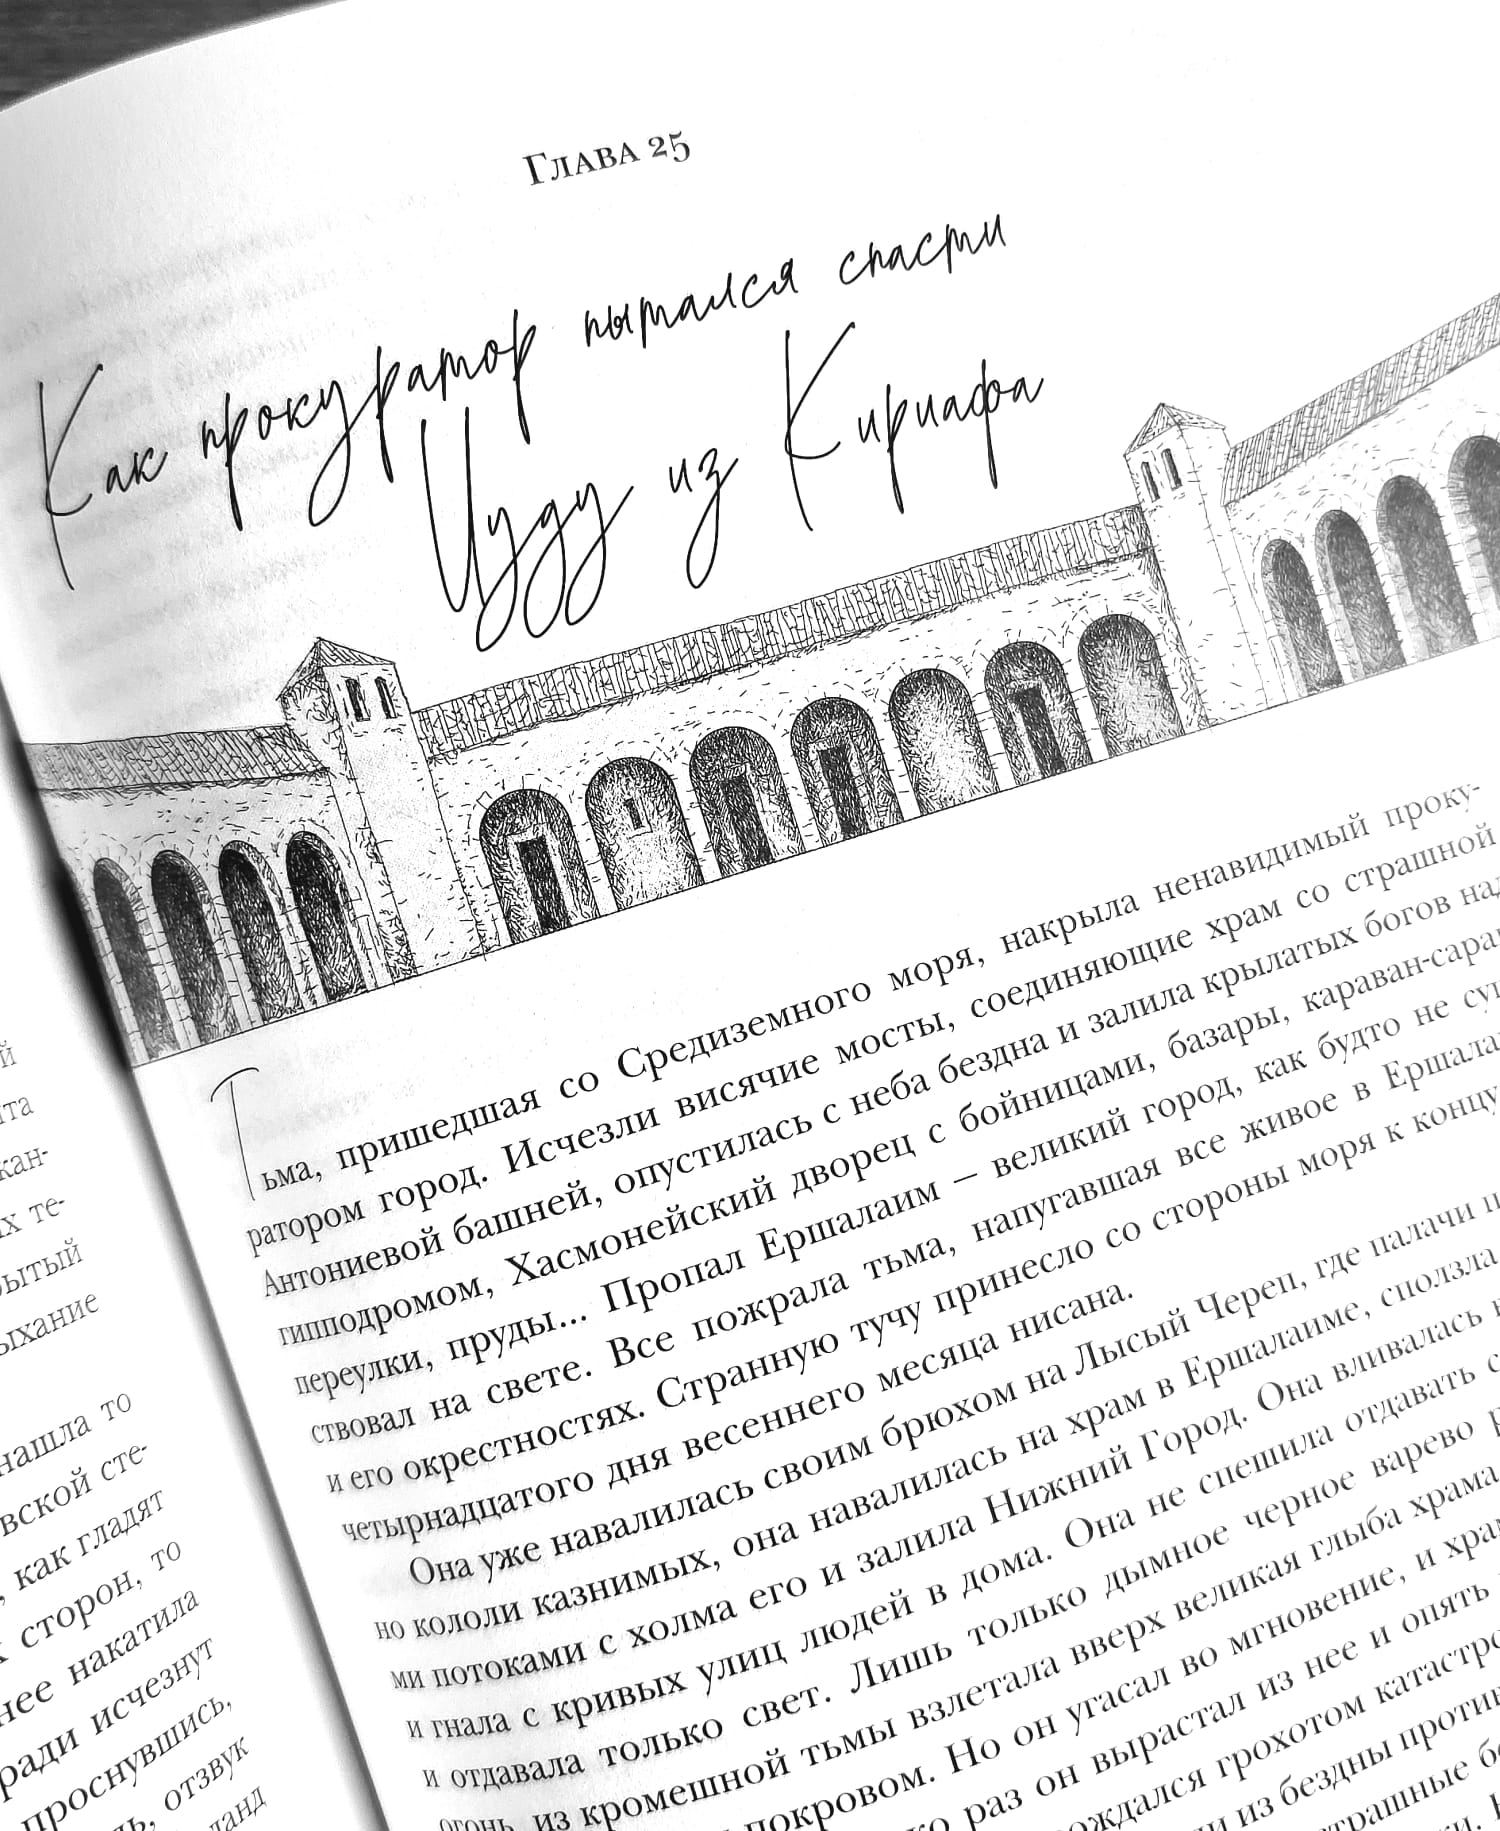 Глава 25
Как прокуратор пытался спасти
Иуду из Кириафа
Тьма, пришедшая со Средиземного моря, накрыла ненавидимый проку-
ратором город. Исчезли висячие мосты, соединяющие храм со страшной
Антониевой башней, опустилась с неба бездна и залила крылатых богов над
гипподромом, Хасмонейский дворец с бойницами, базары, караван-сараи
переулки, пруды... Пропал Ершалаим – великий город, как будто не сущ
ствовал на свете. Все пожрала тьма, напугавшая все живое в Ершалаи
и его окрестностях. Странную тучу принесло со стороны моря к концу
четырнадцатого дня весеннего месяца нисана.
Она уже навалилась своим брюхом на Лысый Череп, где палачи п
но кололи казнимых, она навалилась на храм в Ершалаиме, сползла
ми потоками с холма его и залила Нижний Город. Она вливалась в
и гнала с кривых улиц людей в дома. Она не спешила отдавать с
и отдавала только свет. Лишь только дымное черное варево р
огонь, из кромешной тьмы взлетала вверх великая глыба храма
покровом. Но он угасал во мгновение, и храм
ко раз он вырастал из нее и опять
ождался грохотом катастро
и из бездны против
трашные бе
й
та
кан-
х те-
рытый
ыхание
нашла то
вской сте-
, как гладят
х сторон, то
нее накатила
ради исчезнут
проснувшись,
ь, отзвук
ланд